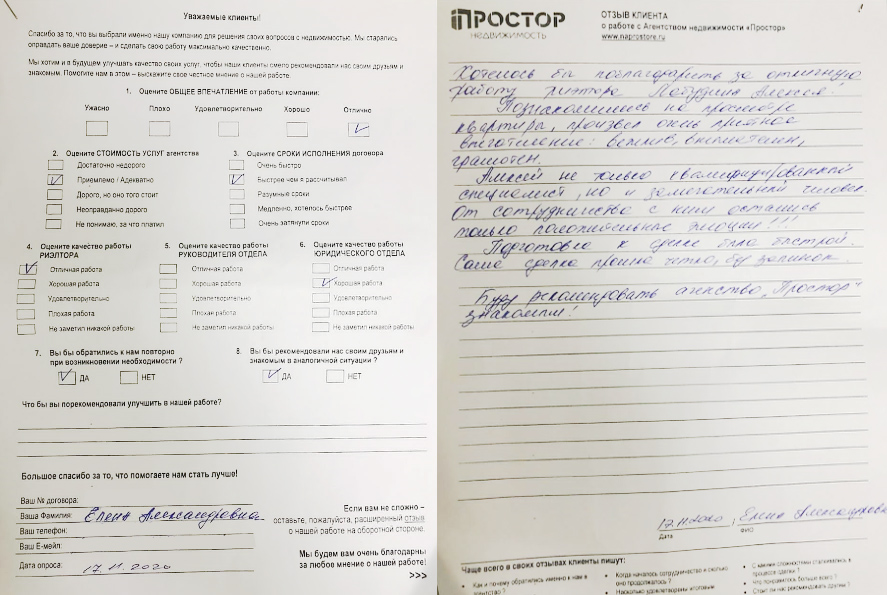 Уважаемые клиенты!
Спасибо за то, что вы выбрали именно нашу компанию для решения своих вопросов с недвижимостью. Мы старались
оправдать ваше доверие – и сделать свою работу максимально качественно.
Мы хотим и в будущем улучшать качество своих услуг, чтобы наши клиенты смело рекомендовали нас своим друзьям и
знакомым. Помогите нам в этом – выскажите свое честное мнение о нашей работе.
1. Оцените ОБЩЕЕ ВПЕЧАТЛЕНИЕ от работы компании:
Ужасно Плохо Удовлетворительно Хорошо Отлично
2. Оцените СТОИМОСТЬ УСЛУГ агентства
Достаточно недорого
Приемлемо / Адекватно
Дорого, но оно того стоит
Неоправданно дорого
Не понимаю, за что платил
3. Оцените СРОКИ ИСПОЛНЕНИЯ договора
Очень быстро
Быстрее чем я рассчитывал
Разумные сроки
Медленно, хотелось быстрее
Очень затянули сроки
4. Оцените качество работы
РИЭЛТОРА
Отличная работа
Хорошая работа
Удовлетворительно
Плохая работа
Не заметил никакой работы
5. Оцените качество работы
РУКОВОДИТЕЛЯ ОТДЕЛА
Отличная работа
Хорошая работа
Удовлетворительно
Плохая работа
Не заметил никакой работы
6. Оцените качество работы
ЮРИДИЧЕСКОГО ОТДЕЛА
Отличная работа
Хорошая работа
Удовлетворительно
Плохая работа
Не заметил никакой работы
7. Вы бы обратились к нам повторно
при возникновении необходимости ?
ДА НЕТ
8. Вы бы рекомендовали нас своим друзьям и
знакомым в аналогичной ситуации ?
ДА НЕТ
Что бы вы порекомендовали улучшить в нашей работе?
Большое спасибо за то, что помогаете нам стать лучше!
Ваш № договора:
Ваша Фамилия: Елена Александровна
Ваш телефон:
Ваш Е-мейл:
Дата опроса: 17.11.2020
Если вам не сложно –
оставьте, пожалуйста, расширенный отзыв
о нашей работе на оборотной стороне.
Мы будем вам очень благодарны
за любое мнение о нашей работе!
>>>
ПРОСТОР
НЕДВИЖИМОСТЬ
ОТЗЫВ КЛИЕНТА
о работе с Агентством недвижимости «Простор»
www.naprostore.ru
Хотелось бы поблагодарить за отличную
работу риэлтора Алексея!
Познакомились на просмотре
квартиры, произвел очень приятное
впечатление: вежлив, внимателен,
грамотен.
Алексей не только квалифицированный
специалист, но и замечательный человек.
От сотрудничества с ним остались
только положительные эмоции!!!
Подготовка к сделке была быстрой.
Сама сделка прошла четко, без заминок.
Буду рекомендовать агенство "Простор"
знакомым!
17.11.2020, Елена Александровна
Дата ФИО
Чаще всего в своих отзывах клиенты пишут:
• Как и почему обратились именно к нам в
агентство ?
• Когда началось сотрудничество и сколько
оно продолжалось ?
• Насколько удовлетворены итоговым
• С какими сложностями сталкивались в
процессе сделки ?
• Что понравилось больше всего ?
• Стоит ли нас рекомендовать другим ?